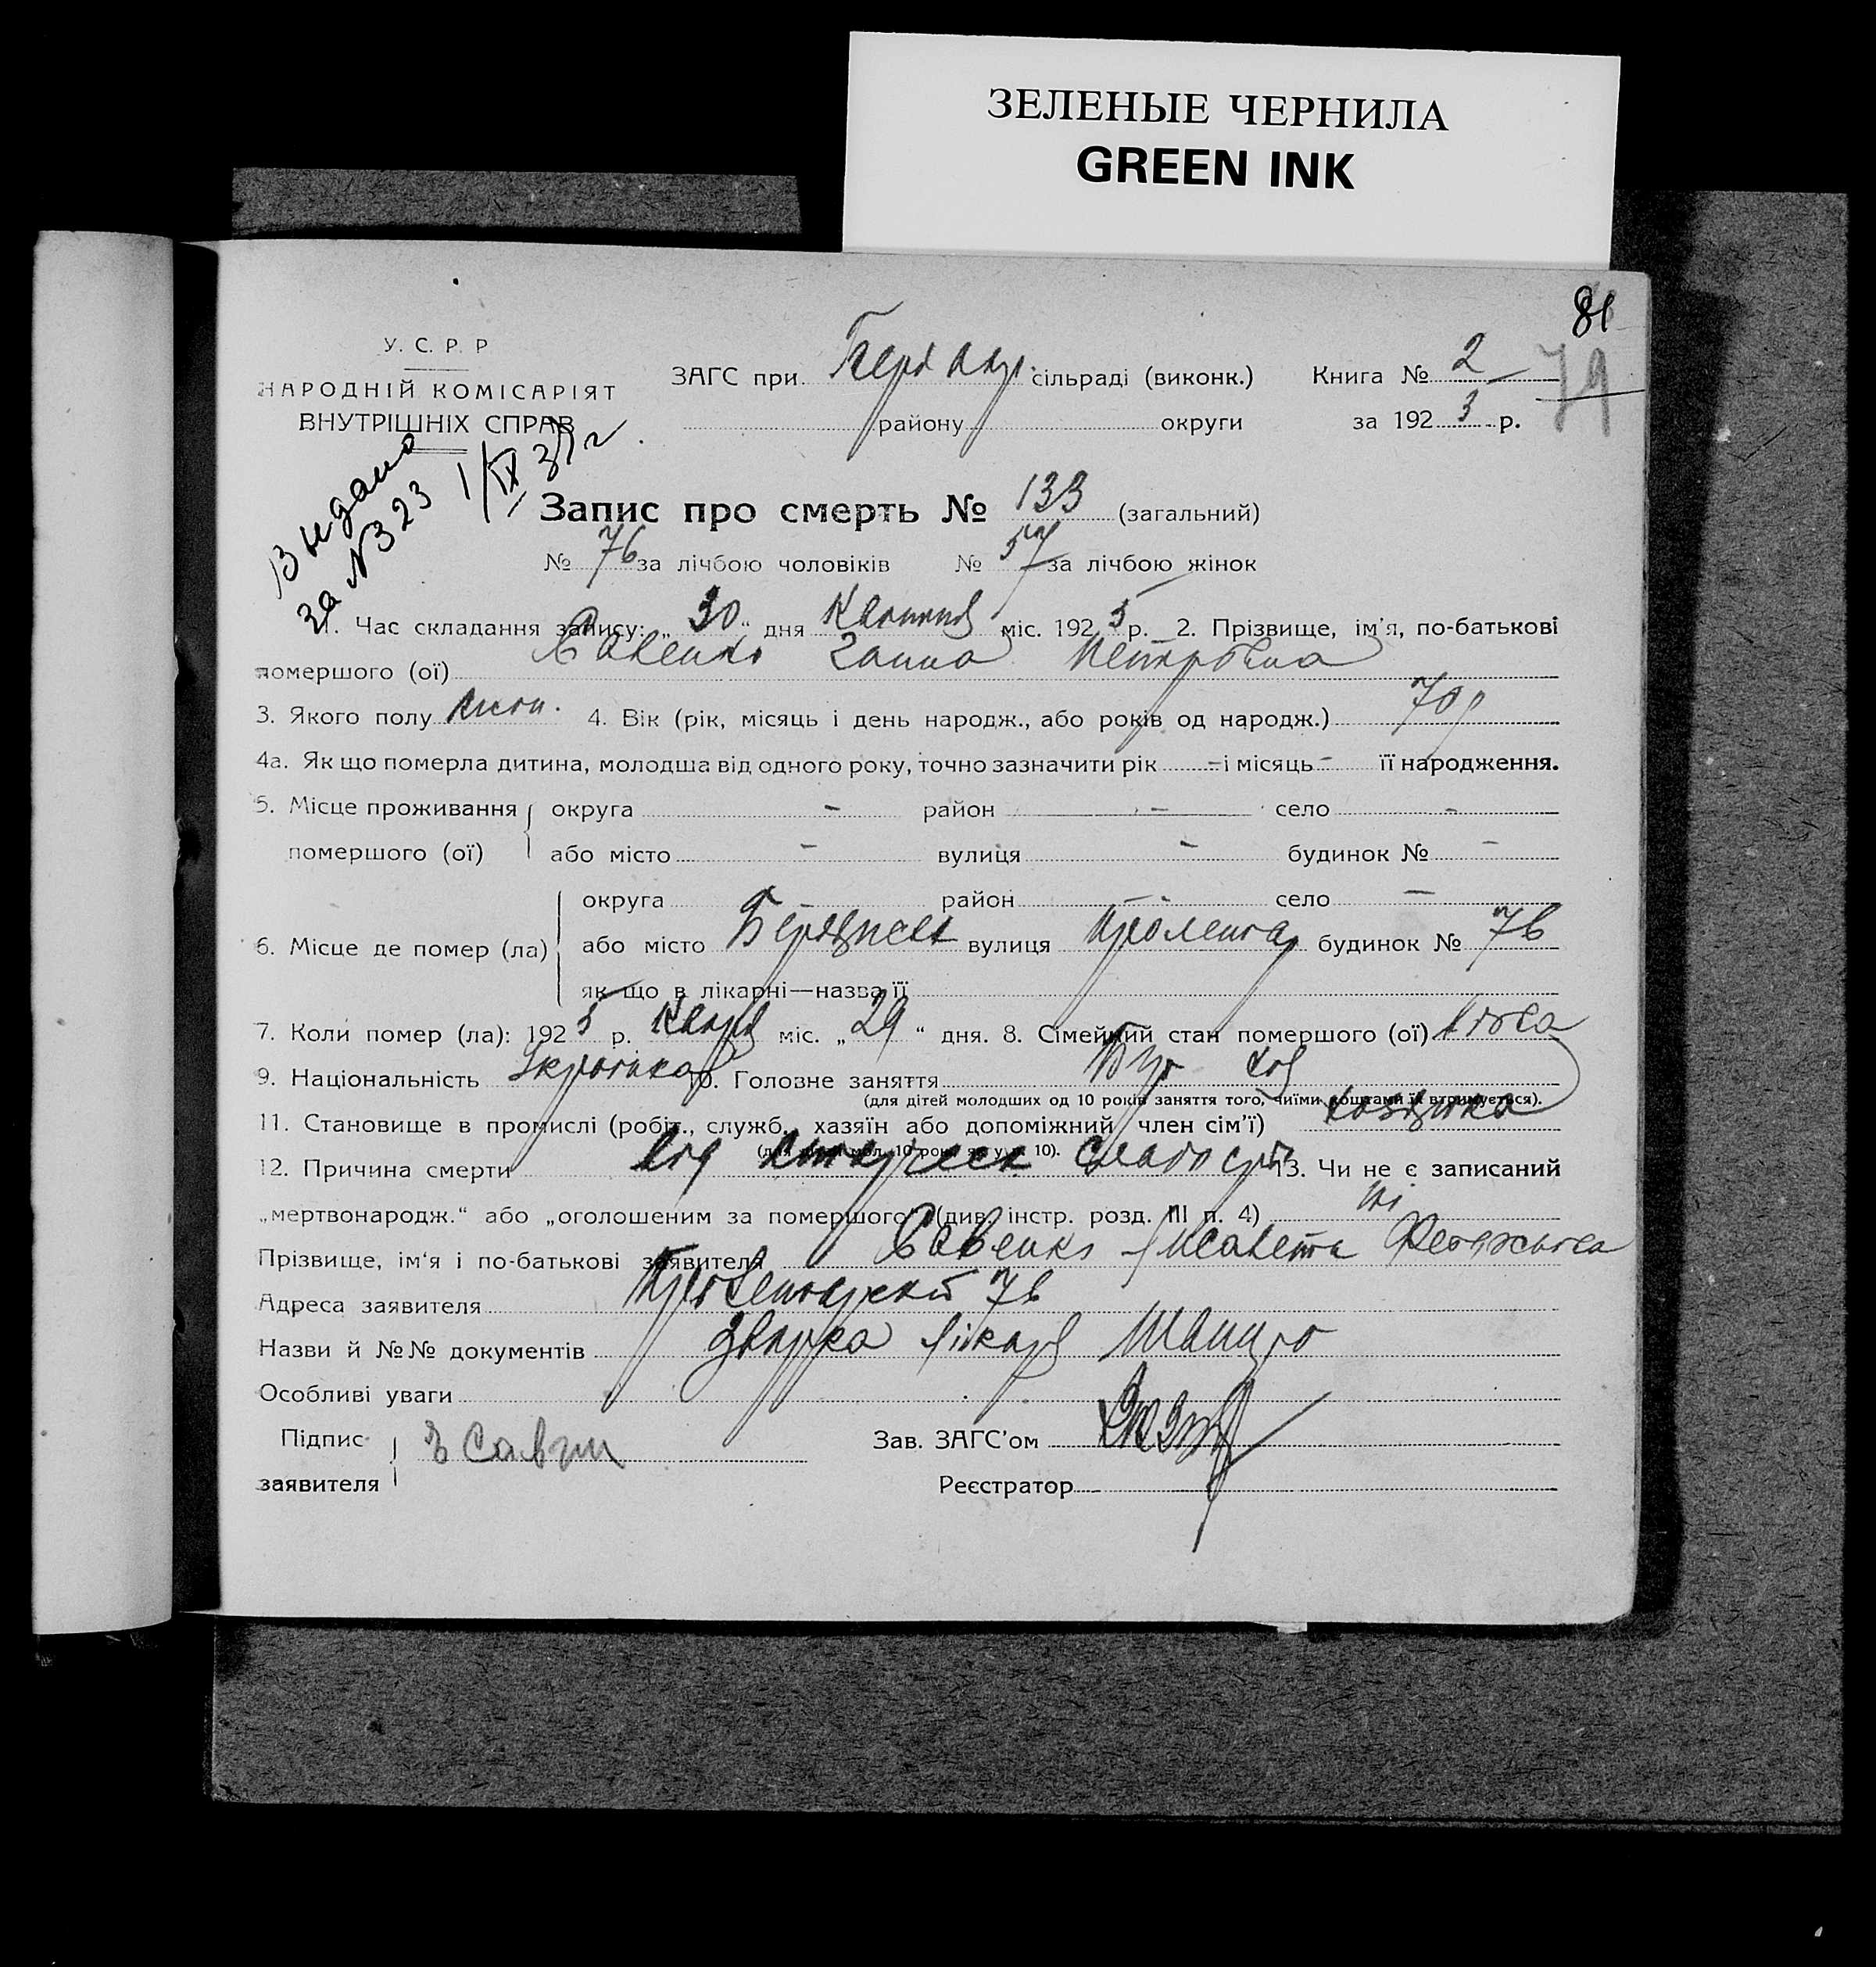 ЗЕЛЕНЫЕ ЧЕРНИЛА
GREEN INK
81
79
У. С. Р. Р
НАРОДНІЙ КОМІСАРІЯТ
ВНУТРІШНІХ СПРАВ
ЗАГС при сільраді (виконк.) Книга № 2
району округи за 1925 р.
Видано
за №323 1/IX 37 г.
Запис про смерть № 133 (загальний)
№ 76 за лічбою чоловіків № 57 за лічбою жінок
1. Час складання запису: „30“ дня Квітня міс. 1925 р. 2. Прізвище, ім'я, по-батькові
помершого (ої) Савенко Ганна Петровна
3. Якого полу жіноч. 4. Вік (рік, місяць і день народж., або років од народж.) 70 р
4а. Як що померла дитина, молодша від одного року, точно зазначити рік – і місяць – її народження.
5. Місце проживання округа – район – село –
помершого (ої) або місто – вулиця – будинок № –
6. Місце де помер (ла) округа – район – село –
або місто Бердянськ вулиця Пролетар будинок № 76
як що в лікарні—назва її
7. Коли помер (ла): 1925 р. Квітня міс. „29“ дня. 8. Сімейний стан помершого (ої) вдова
9. Національність Українка 10. Головне заняття
(для дітей молодших од 10 років заняття того, чиїми коштами їх втримується).
11. Становище в промислі (робіт., служб., хазяїн або допоміжний член сім'ї) хазяйка
(для дітей мол. 10 рок. як у п. 10).
12. Причина смерти від старческ слабости 13. Чи не є записаний
„мертвонародж.“ або „оголошеним за помершого“ (див. інстр. розд. III п. 4) ні
Прізвище, ім'я і по-батькові заявителя Савенко Лисавета
Адреса заявителя Пролетарська 76
Назви й №№ документів Довідка лікаря Шапиро
Особливі уваги
Підпис
заявителя
Зав. ЗАГС'ом
Реєстратор